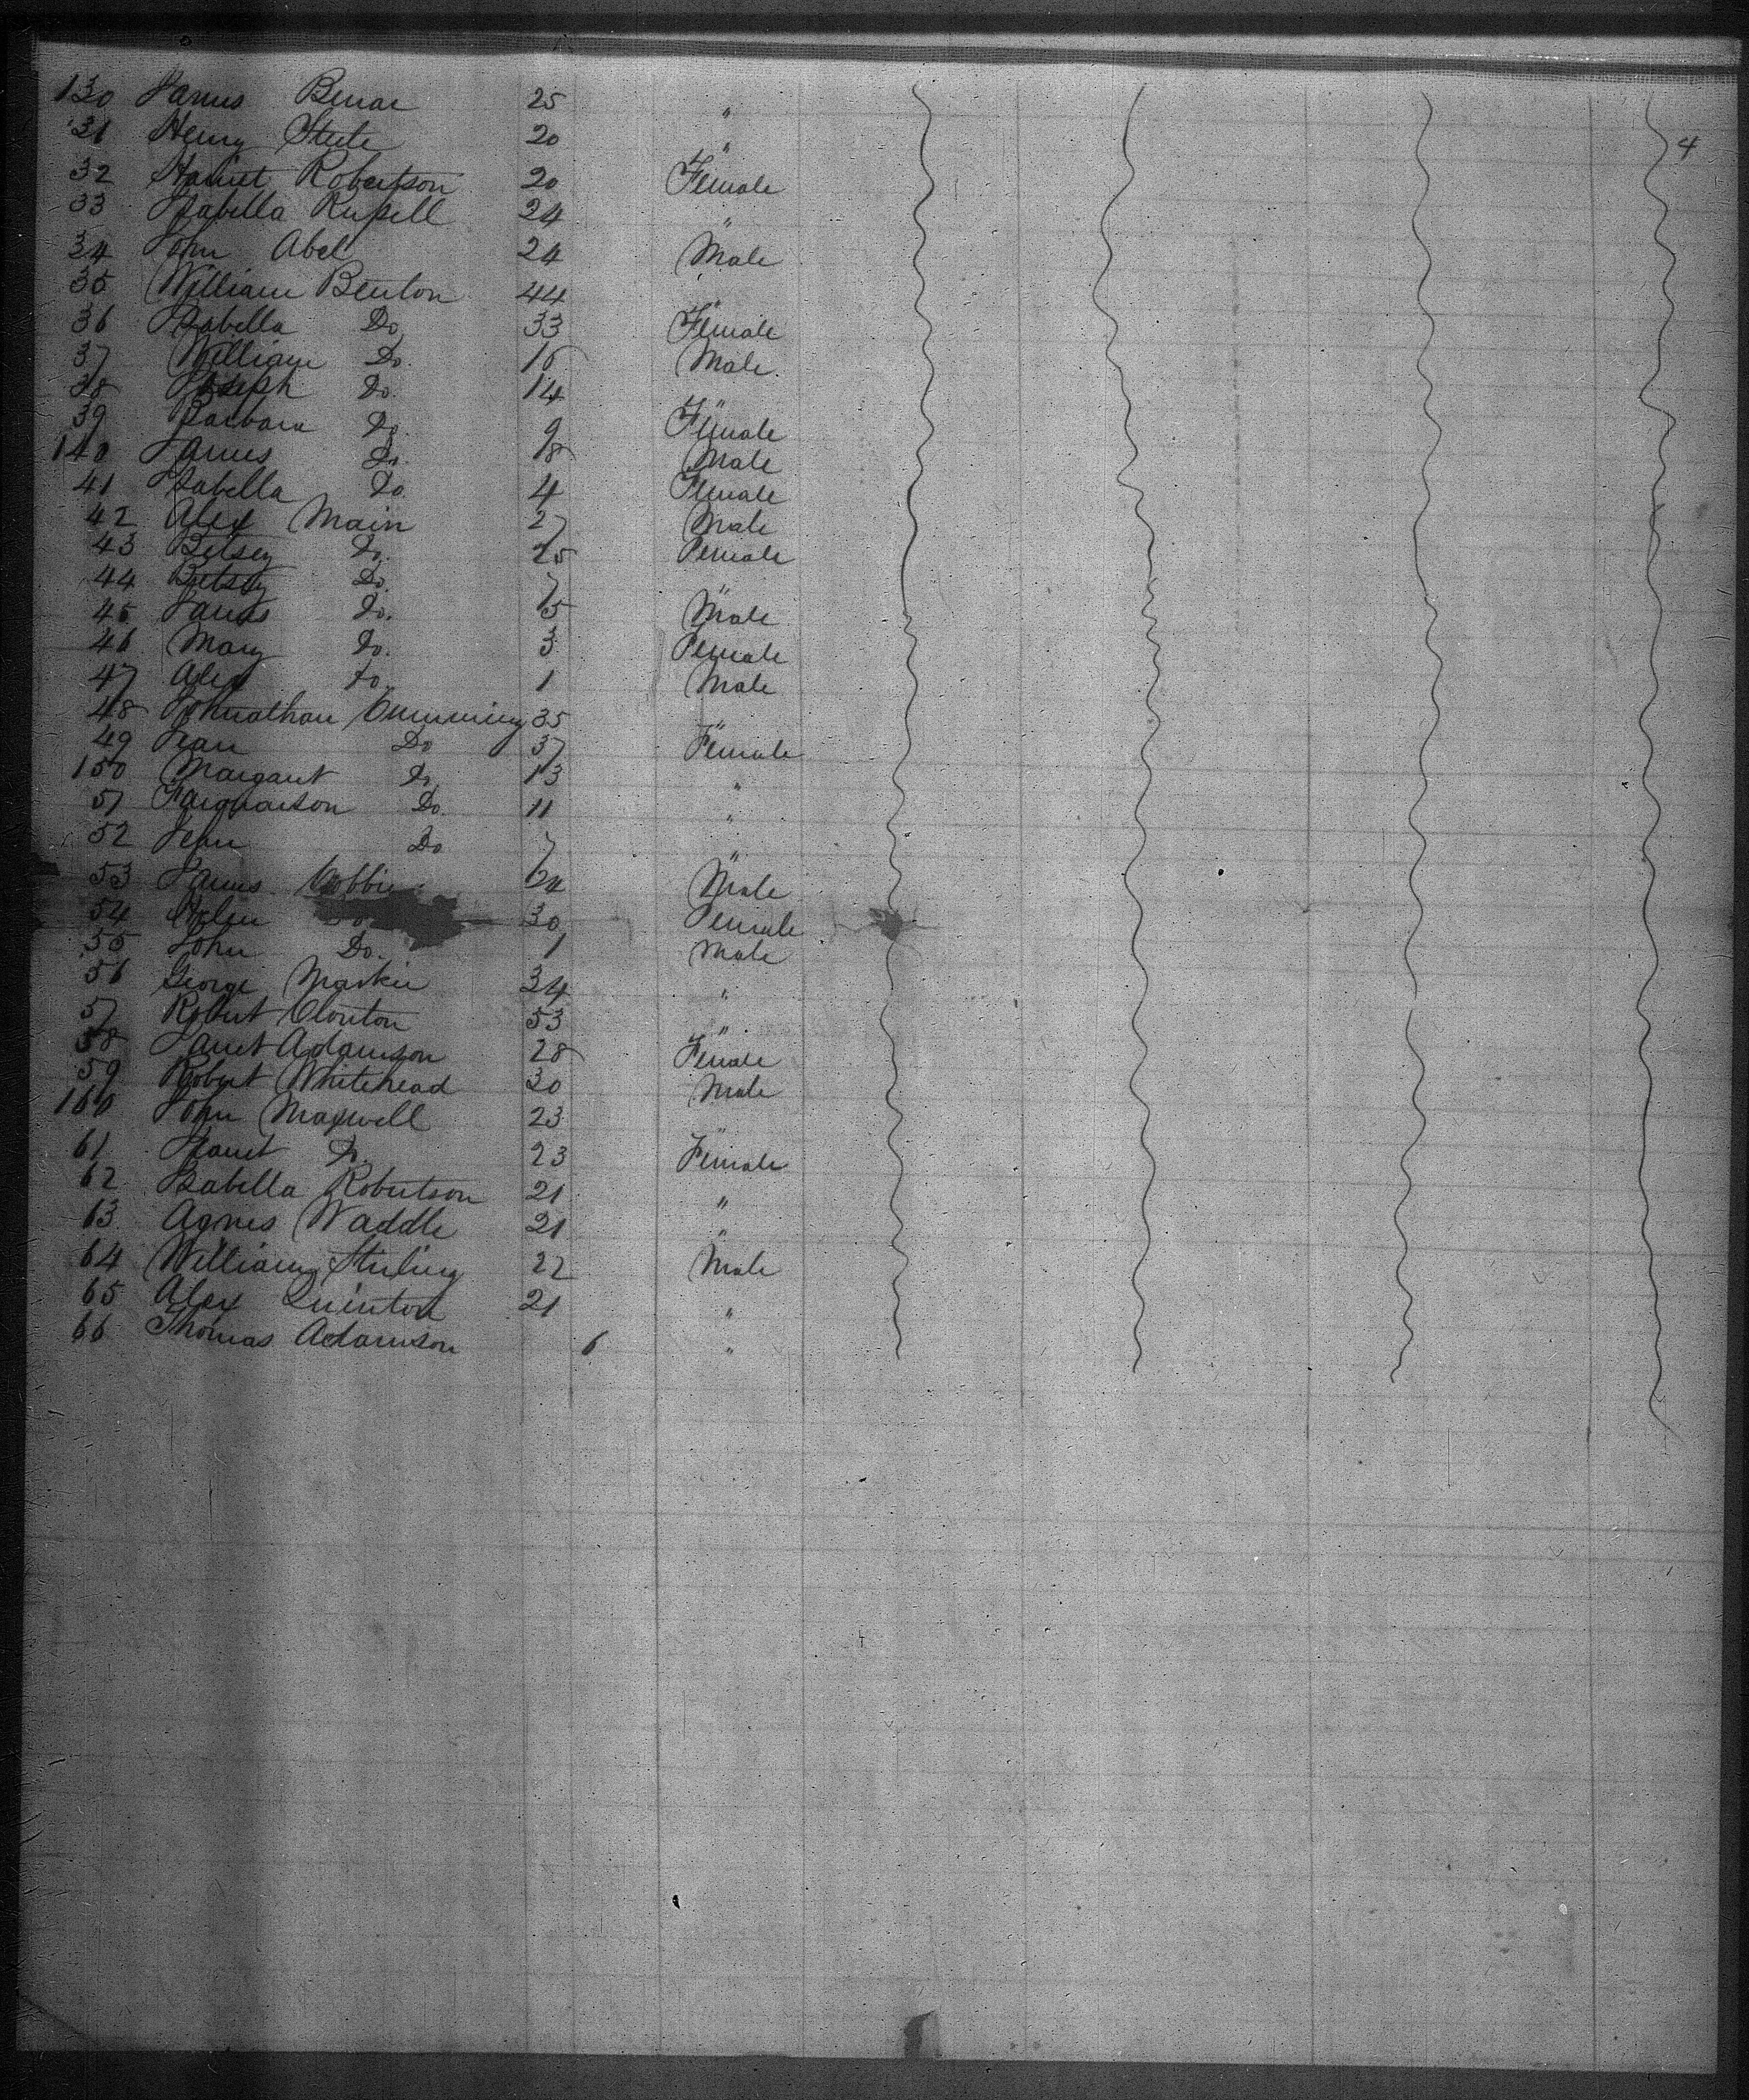 130 James Benar 25 "
31 Henry Steele 20 " 4
32 Harriet Robertson 20 Female
33 Isabella Russell 24 "
34 John Abel 24 Male
35 William Benton 44 "
36 Isabella Do. 33 Female
37 William Do. 16 Male
38 Joseph Do. 14 "
39 Barbara Do. 9 Female
140 James Do. 8 Male
41 Isabella Do. 4 Female
42 Alex Main 27 Male
43 Betsey Do. 25 Female
44 Betsey Do. 7 "
45 James Do. 5 Male
46 Mary Do. 3 Female
47 Alex Do. 1 Male
48 Johnathan Cumming 35 "
49 Jean Do 37 Female
150 Margaret Do. 13 "
51 Farquarson Do. 11 "
52 Jean Do 7 "
53 James Cobbie 24 Male
54 Helen Do 30 Female
55 John Do. 1 Male
56 George 34 "
57 Robert Clouton 53 "
58 Janet Adamson 28 Female
59 Robert Whitehead 30 Male
160 John Maxwell 23 "
61 Janet Do. 23 Female
62 Isabella Robertson 21 "
63 Agnes Waddle 21 "
64 William Stirling 22 Male
65 Alex Quinton 21 "
66 Thomas Adamson 6 "